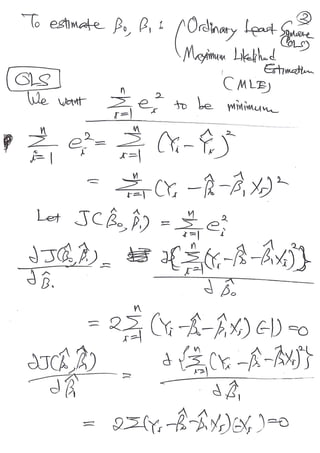 ②
To estimate β₀, β₁ : Ordinary Least Square (OLS)
Maximum Likelihood Estimation (MLE)
OLS
We want Σⁿᵢ₌₁ eᵢ² to be minimum
Σⁿᵢ₌₁ eᵢ² = Σⁿᵢ₌₁ (Yᵢ - Ŷᵢ)²
= Σⁿᵢ₌₁ (Yᵢ - β̂₀ - β̂₁Xᵢ)²
Let J(β̂₀, β̂₁) = Σⁿᵢ₌₁ eᵢ²
dJ(β̂₀, β̂₁)/dβ̂₀ = d{Σⁿᵢ₌₁ (Yᵢ - β̂₀ - β̂₁Xᵢ)²}/dβ̂₀
= 2Σⁿᵢ₌₁ (Yᵢ - β̂₀ - β̂₁Xᵢ)(-1) = 0
dJ(β̂₀, β̂₁)/dβ̂₁ = d{Σⁿᵢ₌₁ (Yᵢ - β̂₀ - β̂₁Xᵢ)²}/dβ̂₁
= 2Σ(Yᵢ - β̂₀ - β̂₁Xᵢ)(-Xᵢ) = 0